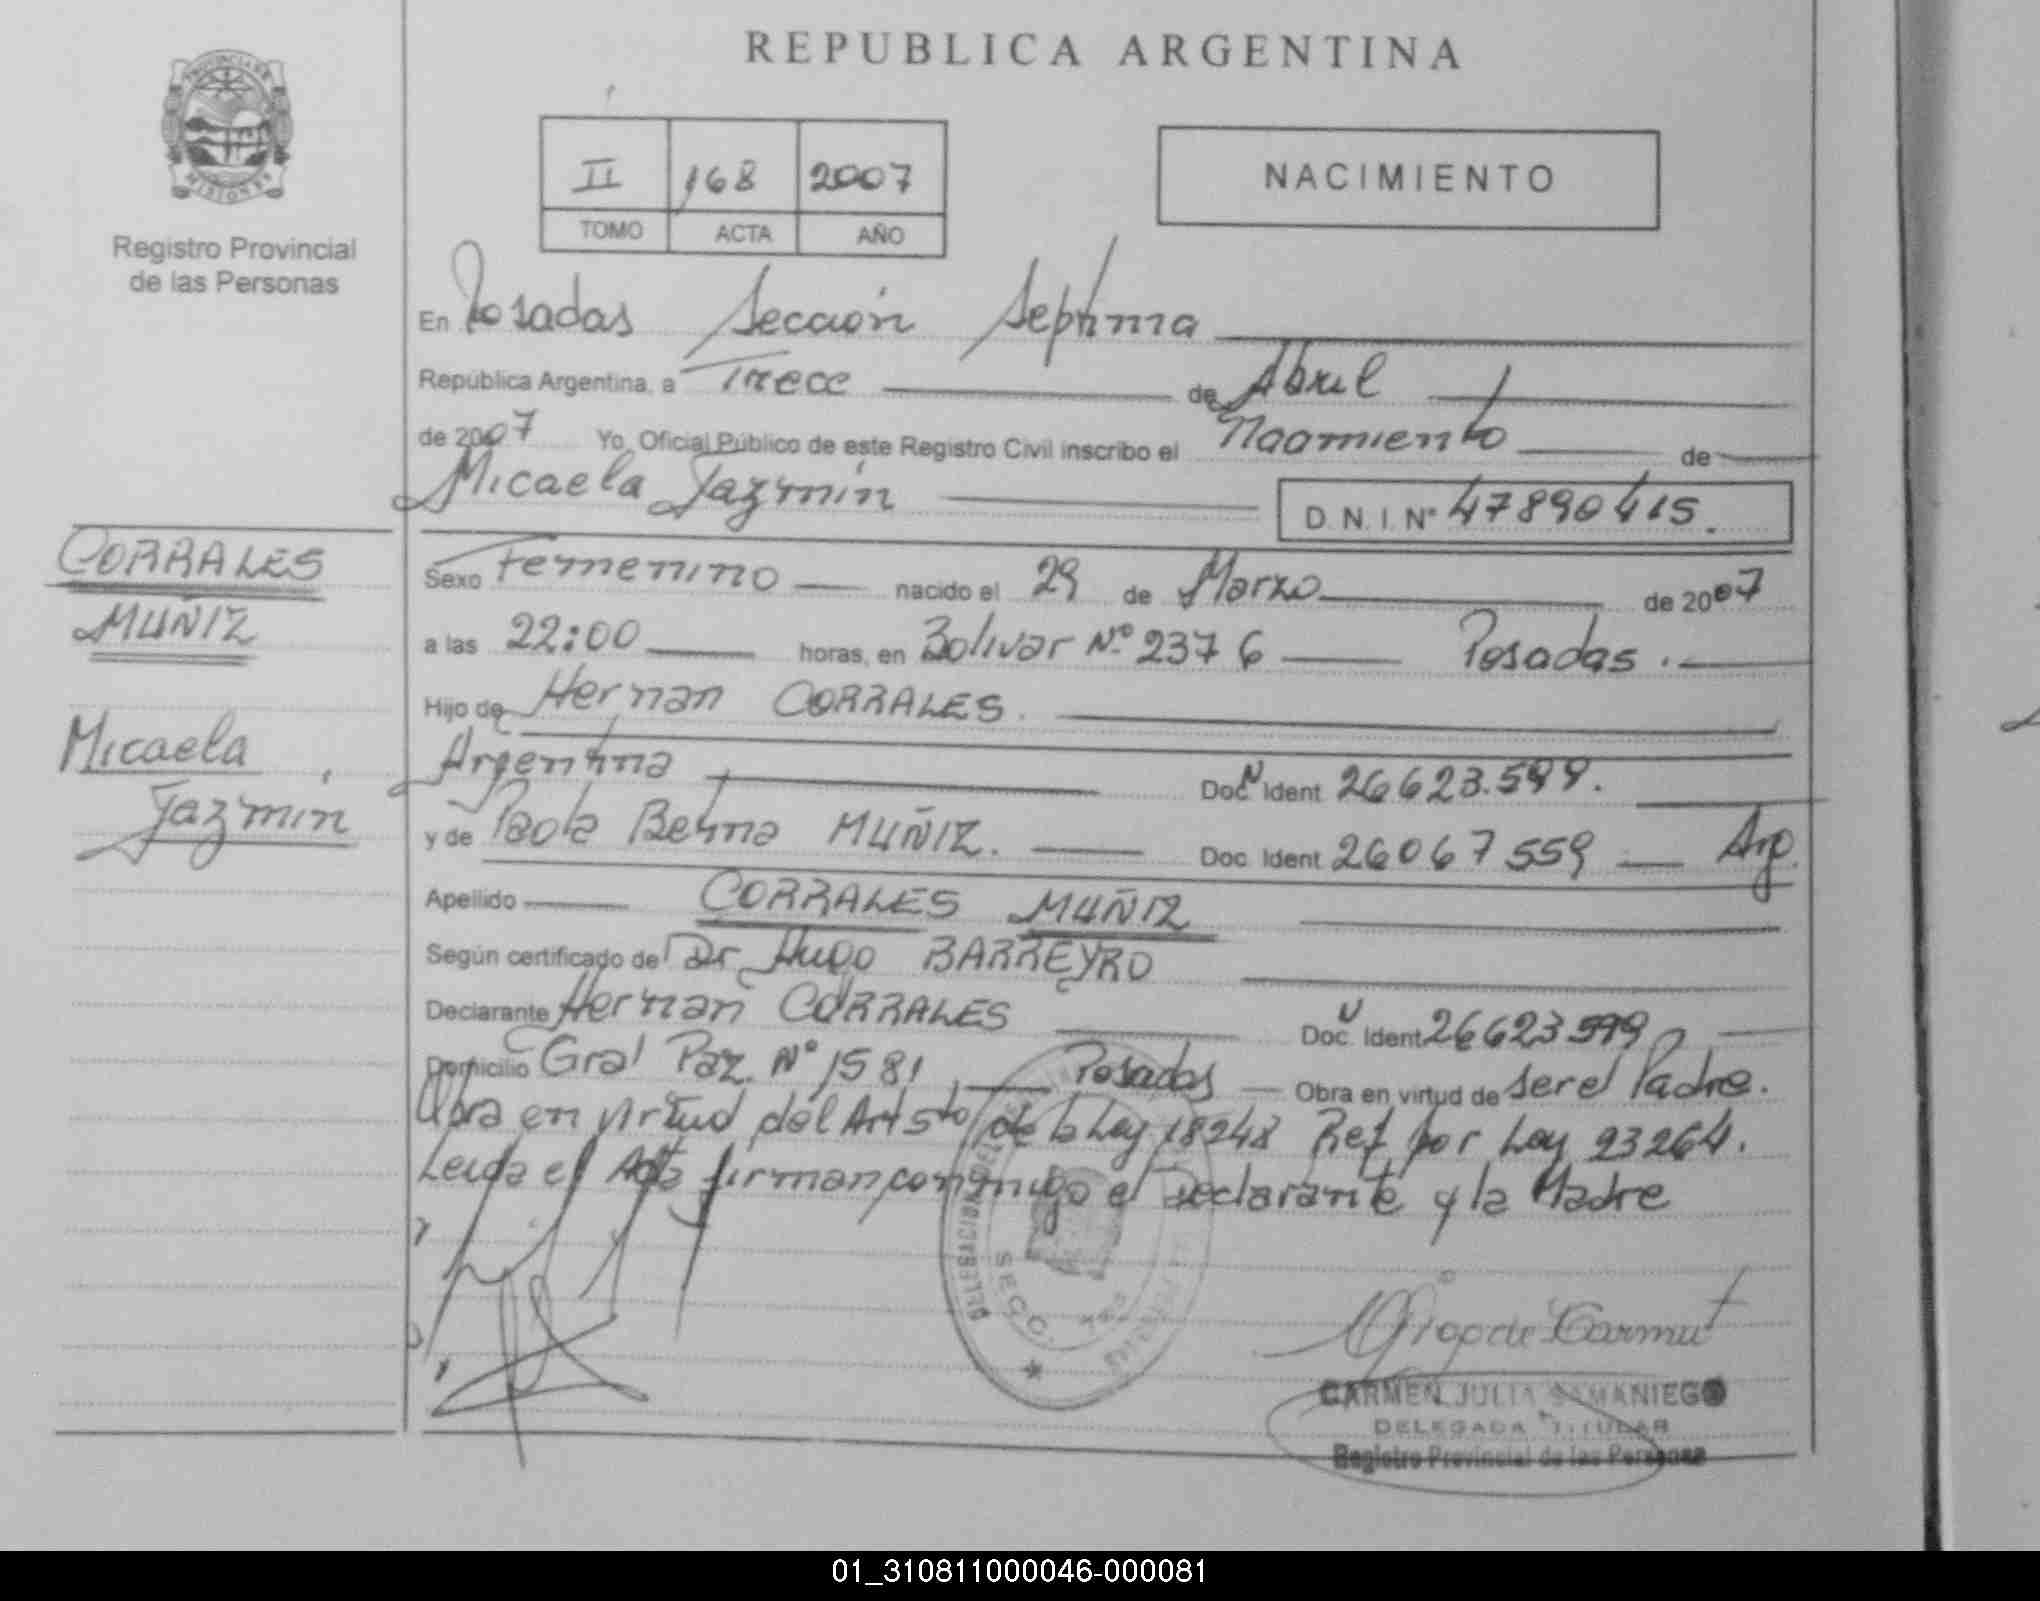 REPUBLICA ARGENTINA
PROVINCIA DE
MISIONES
Registro Provincial
de las Personas
II 168 2007
TOMO ACTA AÑO
NACIMIENTO
En Posadas Sección Septima
República Argentina, a Trece de Abril
de 2007 Yo, Oficial Público de este Registro Civil inscribo el Nacimiento de
Micaela Jazmín D.N.I. Nº 47890415.
CORRALES
MUÑIZ
Micaela
Jazmín
Sexo Femenino nacido el 29 de Marzo de 2007
a las 22:00 horas, en Bolivar Nº 2376 Posadas.
Hijo de Hernan CORRALES.
Argentina Doc. Ident. 26623.599.
y de Paola Betina MUÑIZ. Doc. Ident. 26067559 Arg.
Apellido CORRALES MUÑIZ
Según certificado de Dr Hugo BARREYRO
Declarante Hernan CORRALES Doc. Ident. 26623599
Domicilio Gral Paz Nº 1581 Posadas Obra en virtud de ser el Padre.
Obra en virtud del Art 5to de la Ley 18248 Ref por Ley 23264.
Leida el Acta firman conmigo el Declarante y la Madre
CARMEN JULIA SAMANIEGO
DELEGADA TITULAR
Registro Provincial de las Personas
01_310811000046-000081